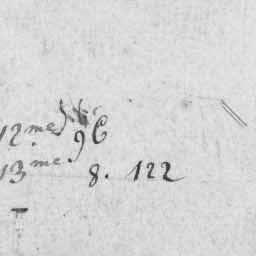 12.me 96
13me 8. 122